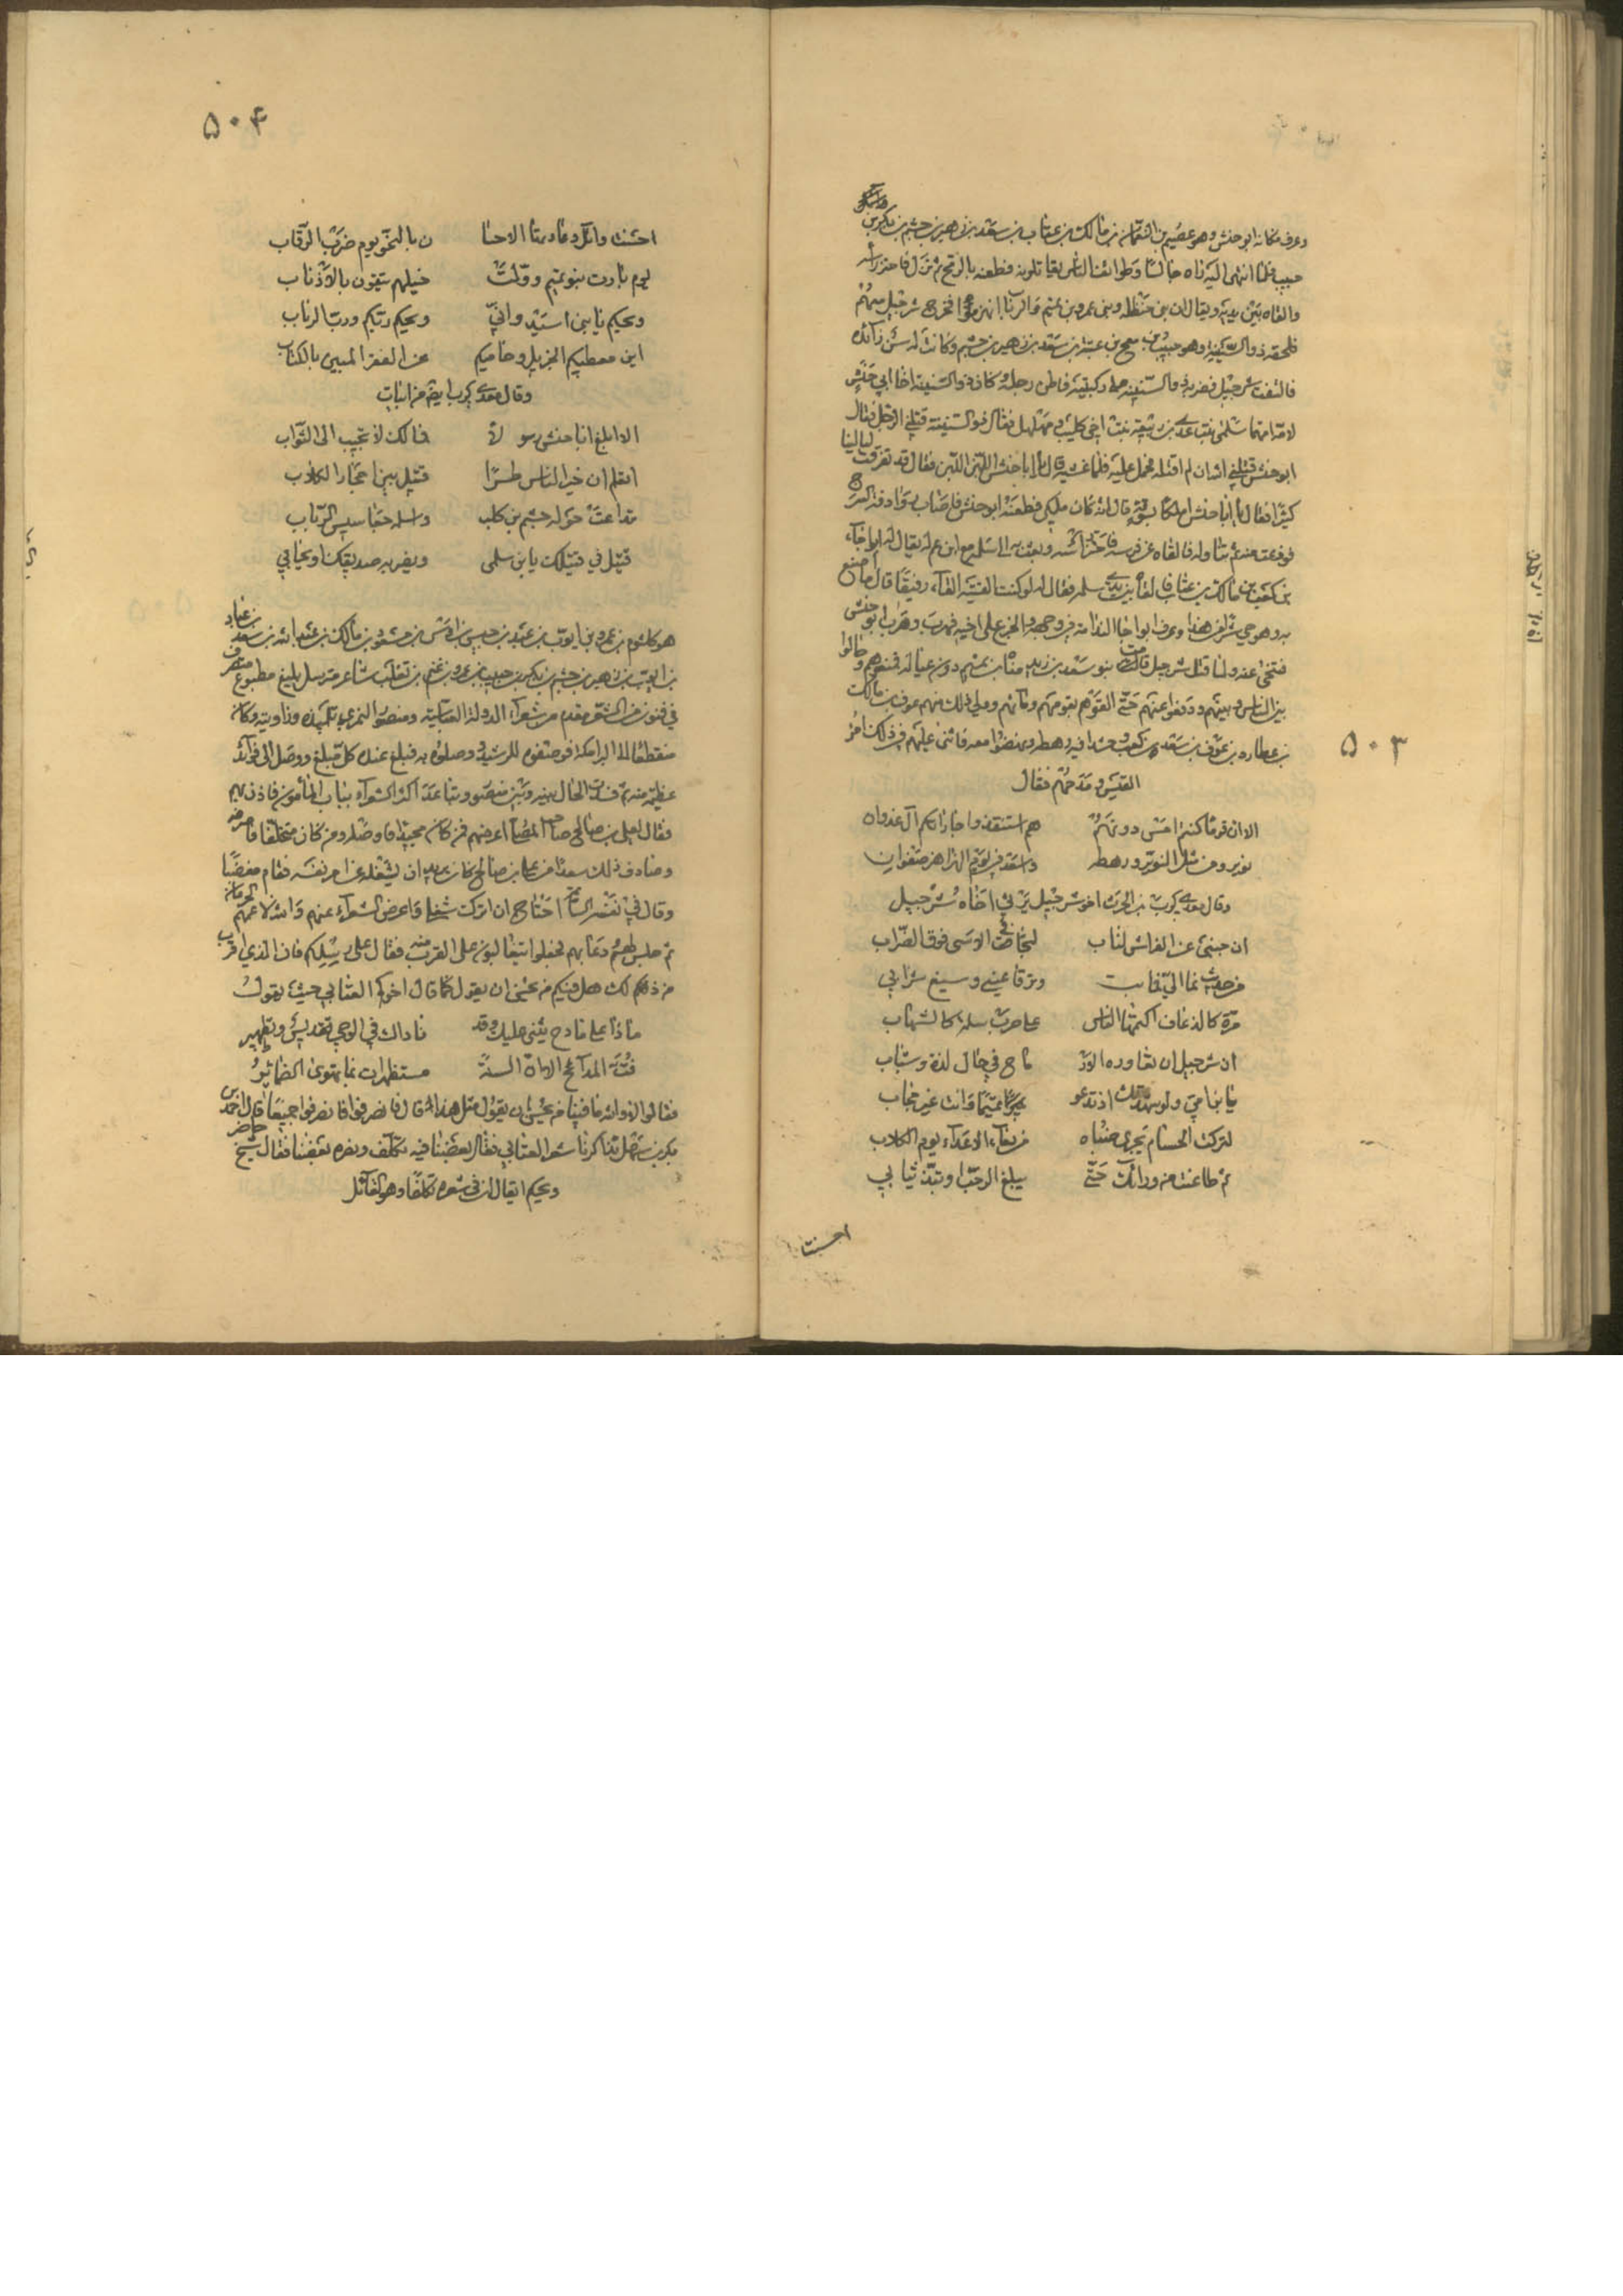 وعرف مكانه ابو حنش وهو عصيم بن النعمان بن مالك بن عتاب بن سعد بن زهير بن جشم بن بكر بن
حبيب فلما انتهى اليه راه جالسا وطوائف الناس يقاتلون فطعنه بالرمح ثم نزل فاحتز راسه
والقاه بين يديه ويقال ان بني حنظله وبني عمرو بن تميم والرباب انهزموا فخرج شرحبيل معهم
فلحقه ذو السنينه وهو حبيب بن عتبه بن سعد بن زهير بن جشم وكانت له سن زائده
فالتفت شرحبيل فضرب ذا السنينه على ركبتيه فاطن رجله وكان ذو السنينه اخا ابي حنش
لامه امهما سلمى بنت عدي بن ربيعه بنت اخي كليب ومهلهل فقال ذو السنينه قتلني الرجل فقال
ابو حنش قتلني الله ان لم اقتله فحمل عليه فلما غشيه قال يا ابا حنش اللبن اللبن فقال قد هرقت لنا لبنا
كثيرا فقال يا ابا حنش املكا بسوقة قال انه كان ملكي فطعنه ابو حنش فاصاب رادفة السرج
فورعت عنه ثم تناوله فالقاه عن فرسه فاحتز راسه وبعث به الى سلمه مع ابن عم له يقال له ابو اجاء
بن كعب بن مالك بن عتاب فالقاه بين يدي سلمه فقال له لو كنت القيته القاء رفيقا قال ما صنع
به وهو حي شر من هذا وعرف ابو اجا الندامه في وجهه والجزع على اخيه فهرب وهرب ابو حنش
فتنحى عنه ولما قتل شرحبيل قامت بنو سعد بن زيد مناة بن تميم دون عياله فمنعوهم وحالوا
بين الناس وبينهم ودفعوا عنهم حتى الحقوهم بقومهم ومامنهم وولي ذلك منهم عوف بن مالك
بن عطارد بن عوف بن سعد بن كعب وحشد فيه رهطه ونهضوا معه فاثنى عليهم في ذلك امرؤ
القيس ومدحهم فقال
الا ان قوما كنتم امس دونهم    هم استنقذوا جاراتكم ال غدران
عوير ومن مثل العوير ورهطه    واسعد في يوم الهزاهز صفوان
وقال معدي كرب بن الحرث اخو شرحبيل يرثي اخاه شرحبيل
ان جنبي عن الفراش لناب    لتجافي الاسر فوق الضراب
من حديث نما الي فما    ترقا عيني وسيغ شرابي
مرة كالذعاف اكتمها الناس    على حر ملة كالشهاب
ان شرحبيل ان تعاوره الار    ماح في حال لذة وشباب
يا ابن امي ولو شهدتك اذ تدعو    تميما وانت غير مجاب
لتركت الحسام تجري ظباه    من دماء الاعداء يوم الكلاب
ثم طاعنت من ورائك حتى    يبلغ الرحب او تبز ثيابي
احسنت
۵۰۳
۵۰۴
احسنت وائل وعادتها الاحسا    ن بالحنو يوم ضرب الرقاب
يوم فرت بنو تميم وولت    خيلهم يتقون بالاذناب
ويحكم يا بني اسيد واني    ويحكم ربكم ورب الرباب
اين معطيكم الجزيل وحابيكم    على الفقر بالمئين الكباب
وقال معدي كرب ايضا من ابيات
الا ابلغ ابا حنش رسولا    فمالك لا تجيب الى الثواب
تعلم ان خير الناس طرا    قتيل بين احجار الكلاب
تداعت حوله جشم بن بكر    واسلمه جعاسيس الرباب
قتيل ما قتيلك يا بن سلمى    ويضر به صديقك او تحابي
هو كلثوم بن عمرو بن ايوب بن عبيد بن حبيش بن اوس بن مسعود بن مالك بن عبد الله بن عتاب بن سعد
بن زهير بن جشم بن بكر بن حبيب بن عمرو بن غنم بن تغلب شاعر مترسل بليغ مطبوع متصرف
في فنون من الشعر مقدم من شعراء الدولة العباسية ومنصور النمري تلميذه وراويته وكان
منقطعا الى البرامكة فوصفوه للرشيد ووصلوه به فبلغ عنده كل مبلغ ووصل الى فوائد
عظيمة منه ثم فسدت الحال بينه وبين منصور وتباعدا اكثر الشعراء بباب المامون فاذن لهم
فقال لعلي بن صالح صاحب المصلى اعرضهم فمن كان مجيدا فاوصله ومن كان متخلفا فاصرفه
وصادف ذلك شغلا من علي بن صالح كان يريد ان يتشاغل به من امر نفسه فقام مغضبا
وقال في نفسه احتاج ان اترك شغلي واعرض الشعراء عنهم والله لاعمنهم بالحرمان
ثم جلس لهم ودعا بهم فجعلوا يتغالبون على القرب منه فقال على رسلكم فان المدى اقرب
من ذلك هل فيكم من يحسن ان يقول كما قال اخوكم العتابي حيث يقول
ماذا عسى مادح يثني عليك وقد    ناداك في الوحي تقديس وتطهير
فت المدائح الا ان السنة    مستنطقات بما تهوى الضمائير
فقالوا لا والله ما فينا من يحسن ان يقول مثل هذا قال فانصرفوا فانصرفوا جميعا قال احمد بن
بكر بن سهل تذاكرنا شعر العتابي فقال بعضنا فيه تكلف ونصره بعضنا فقال شيخ حاضر
ويحكم ايقال ان في شعره تكلفا وهو القائل